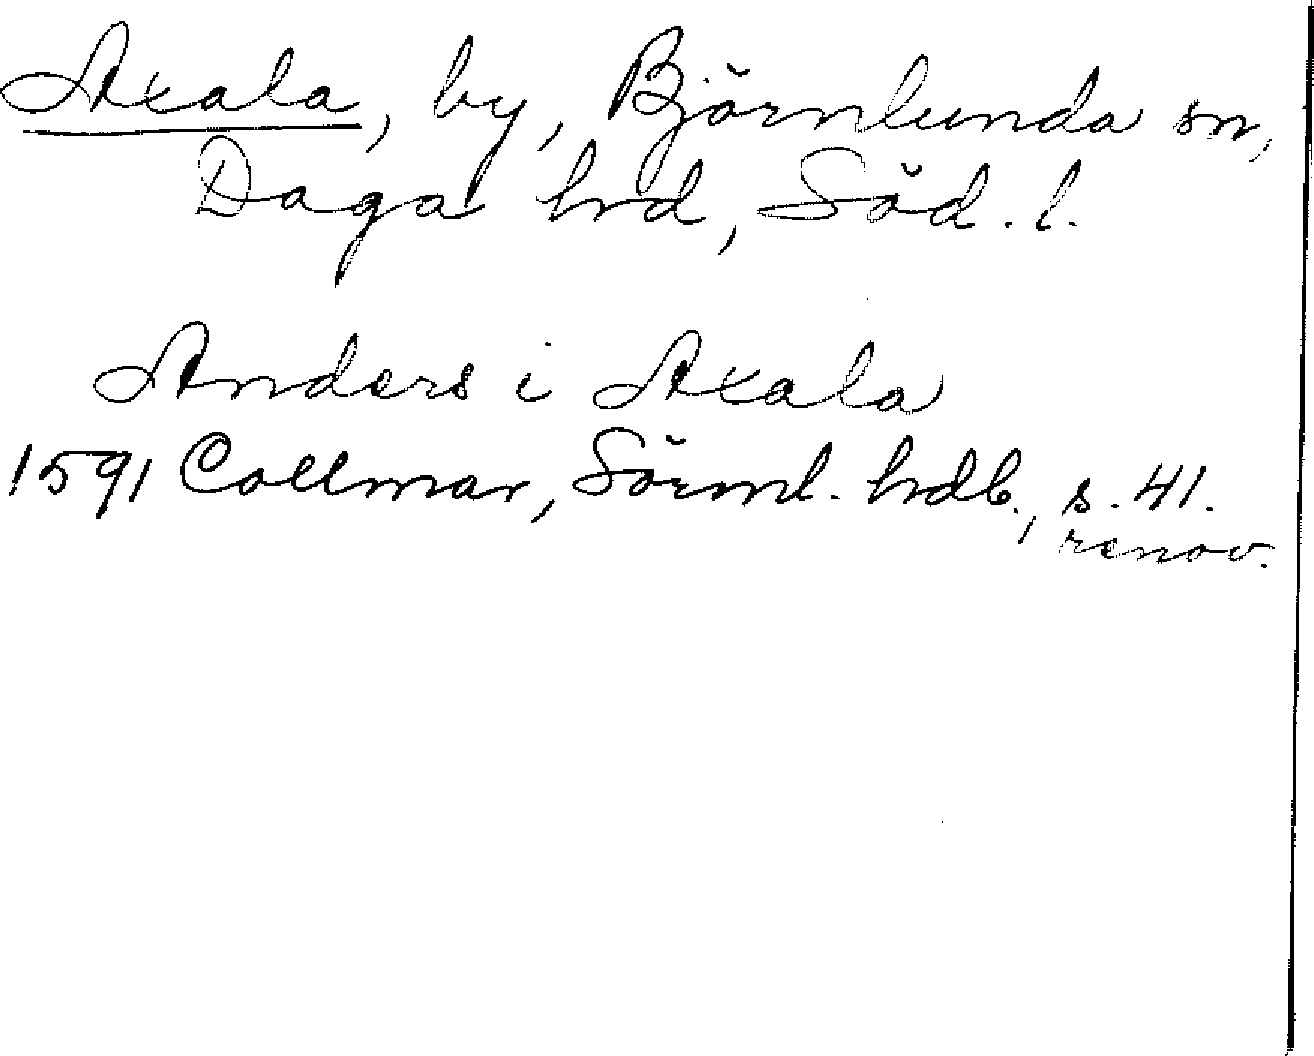 Axala, by, Björnlunda sn,
Daga hrd, Söd. l.
Anders i Axala
1591 Collmar, Sörml. hrdb., s. 41.
renov.